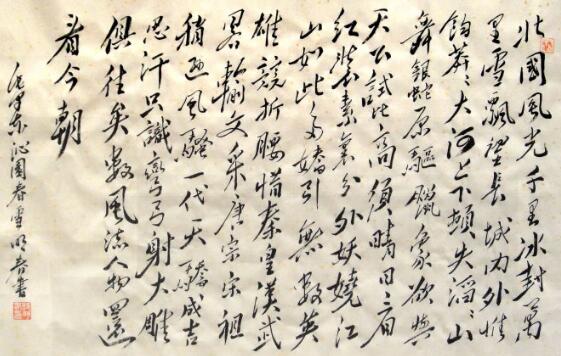 北國風光千里冰封萬
里雪飄望長城内外惟
餘莽々大河上下頓失滔々山
舞銀蛇原驅蠟象欲與
天公試比高須晴日看
紅裝素裹分外妖嬈江
山如此多嬌引無數英
雄競折腰惜秦皇漢武
略輸文采唐宗宋祖
稍遜風騷一代天驕成吉
思汗只識彎弓射大雕
俱往矣數風流人物還
看今朝
毛澤東沁園春雪明春書